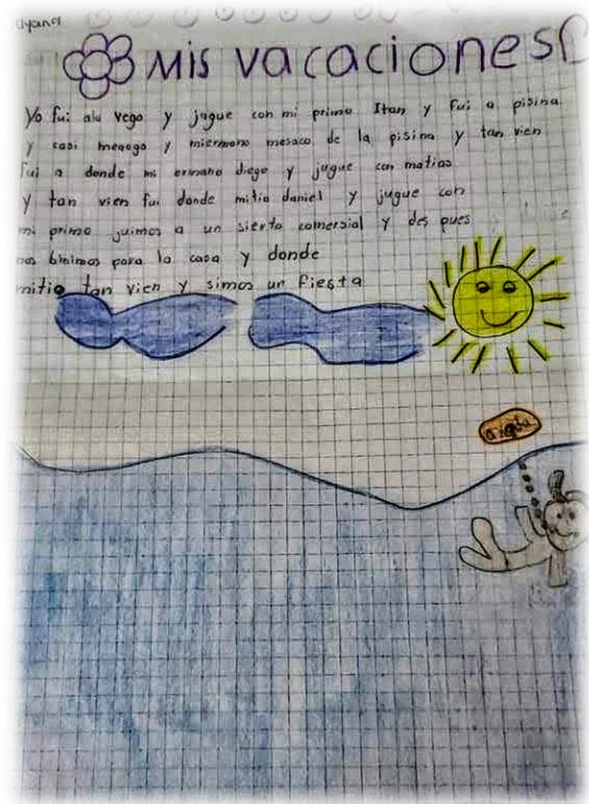 Mis vacaciones
Yo fui ala vega y jugue con mi primo Itan y fui a pisina
y casi meaogo y miermano mesaco de la pisina y tan vien
fui a donde mi ermano diego y jugue con matias
y tan vien fui donde mitio daniel y jugue con
mi primo juimos a un sierto comersial y des pues
nos binimos para la casa y donde
mitio tan vien y simos un fiesta